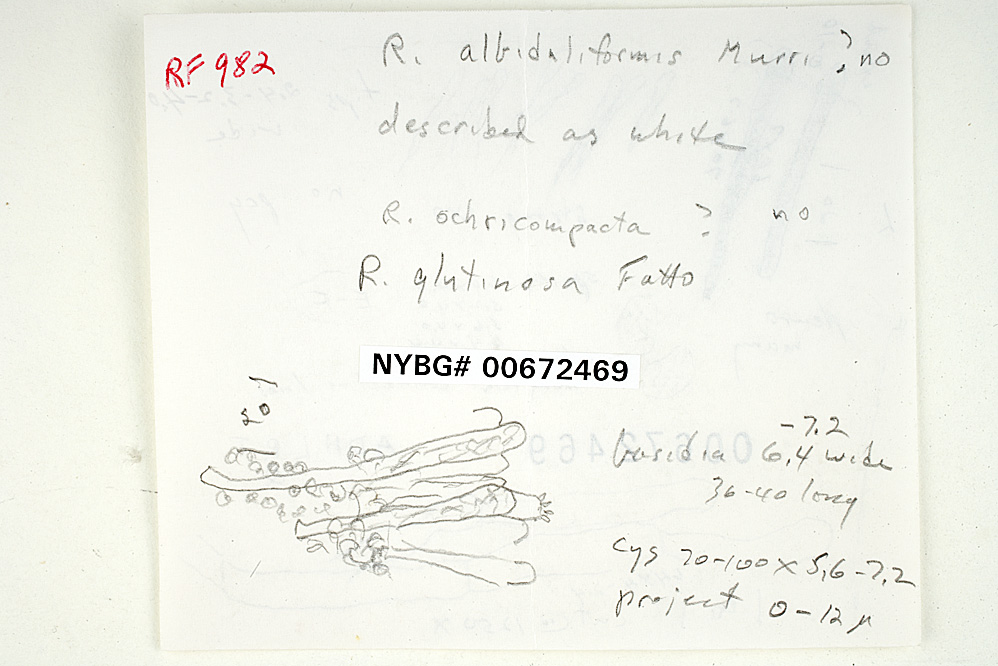 RF 982
R. albiduliformis Murri ? no
described as white
R. ochricompacta ? no
R. glutinosa Fatto
NYBG# 00672469
20
-7.2
basidia 6,4 wide
36-40 long
cys 70-100 x 5,6-7,2
project 0-12 µ